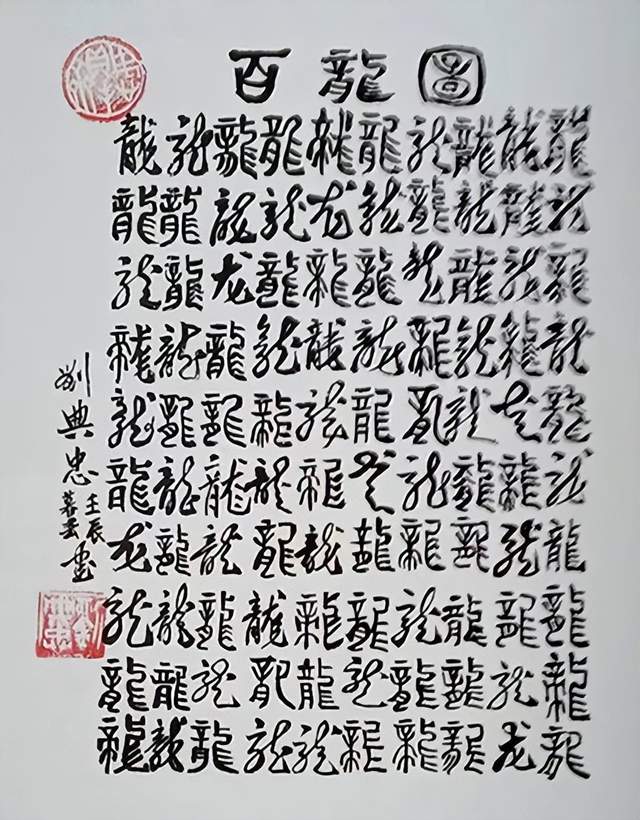 百龍圖
龍龍龍龍龍龍龍龍龍龍
龍龍龍龍龙龍龍龍龍龍
龍龍龙龍龍龍龍龍龍龍
龍龍龍龍龍龍龍龍龍龍
龍龍龍龍龍龍龍龍龙龍
龍龍龍龍龍龙龍龍龍龍
龙龍龍龍龍龍龍龍龍龍
龍龍龍龍龍龍龍龍龍龍
龍龍龍龍龍龍龍龍龍龍
龍龍龍龍龍龍龍龍龙龍
刘典忠
壬辰
書